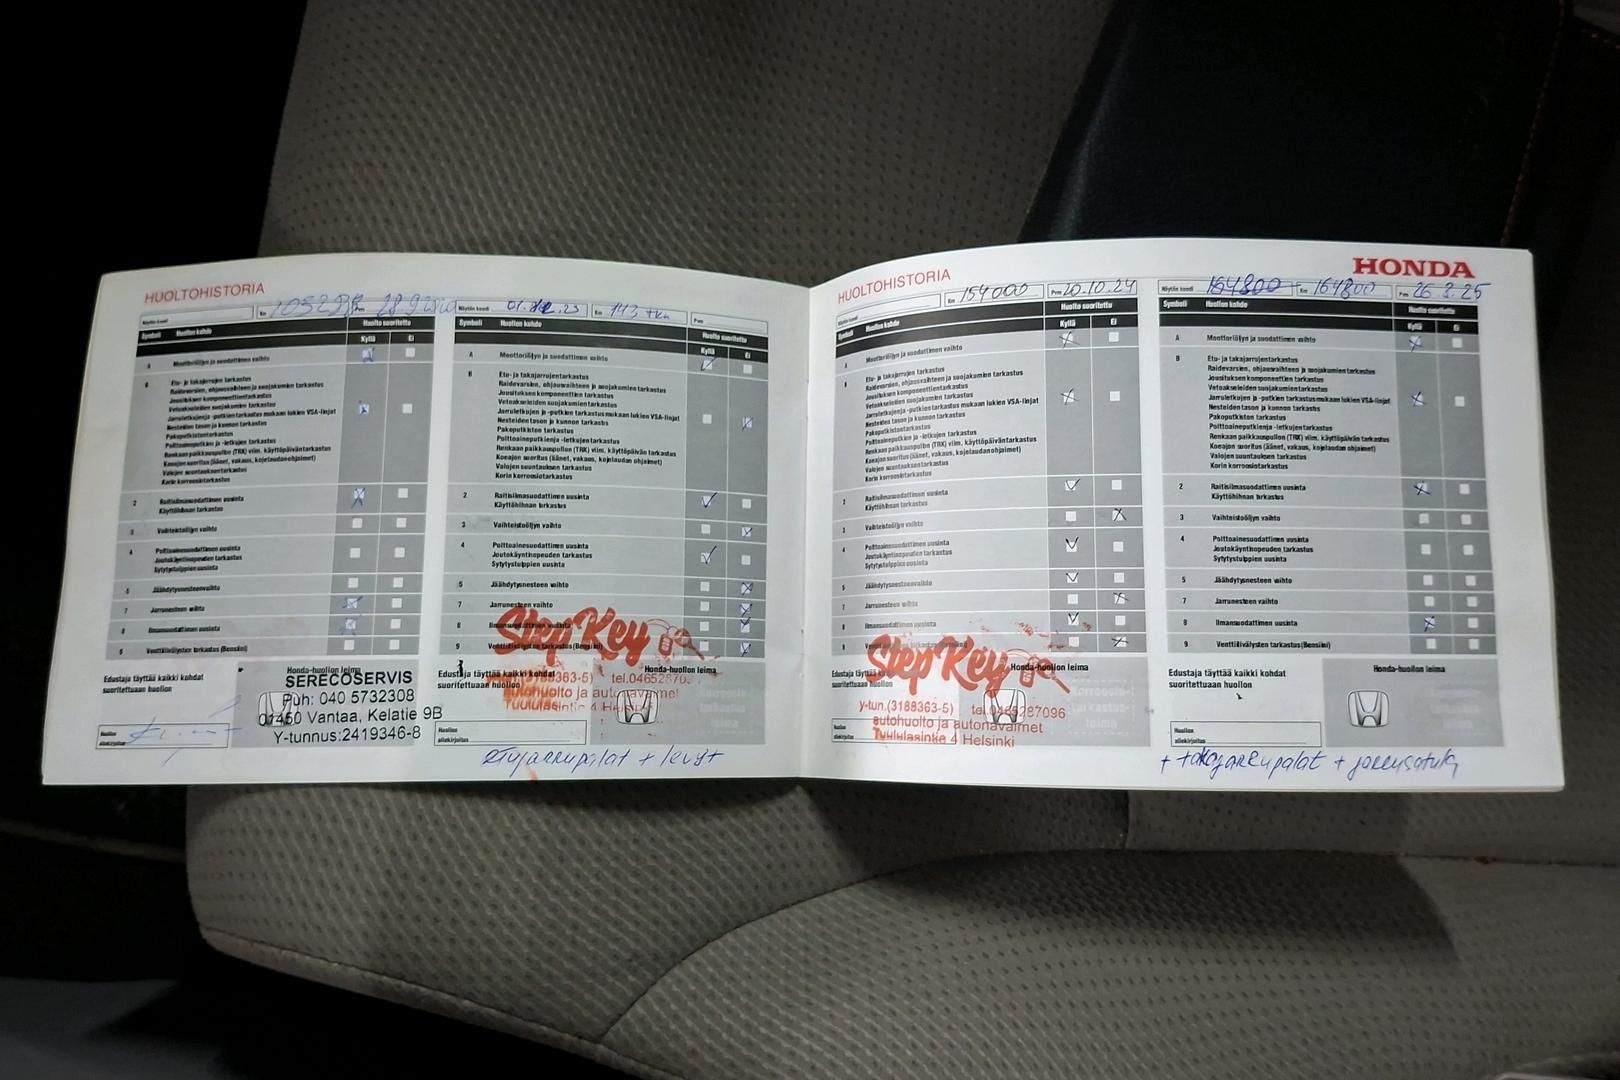 HUOLTOHISTORIA
Näytön koodi Km Pvm
Symboli Huollon kohde Huolto suoritettu
Kyllä Ei
A Moottoriöljyn ja suodattimen vaihto
B Etu- ja takajarrujen tarkastus
Raidevarsien, ohjausvaihteen ja suojakumien tarkastus
Jousituksen komponenttien tarkastus
Vetoakseleiden suojakumien tarkastus
Jarruletkujen ja -putkien tarkastus mukaan lukien VSA-linjat
Nesteiden tason ja kunnon tarkastus
Pakoputkiston tarkastus
Polttoaineputkien ja -letkujen tarkastus
Renkaan paikkauspullon (TRK) viim. käyttöpäivän tarkastus
Koeajon suoritus (äänet, vakaus, kojelaudan ohjaimet)
Valojen suuntauksen tarkastus
Korin korroosiotarkastus
2 Raitisilmasuodattimen uusinta
Käyttöhihnan tarkastus
3 Vaihteistoöljyn vaihto
4 Polttoainesuodattimen uusinta
Joutokäyntinopeuden tarkastus
Sytytystulppien uusinta
5 Jäähdytysnesteen vaihto
7 Jarrunesteen vaihto
8 Ilmansuodattimen uusinta
9 Venttiilivälysten tarkastus (Bensiini)
Edustaja täyttää kaikki kohdat
suoritettuaan huollon
Honda-huollon leima
SERECOSERVIS
Puh: 040 5732308
01450 Vantaa, Kelatie 9B
Y-tunnus:2419346-8
Huollon
allekirjoitus
Näytön koodi 01.12.23 Km 143 tkm Pvm
Symboli Huollon kohde Huolto suoritettu
Kyllä Ei
A Moottoriöljyn ja suodattimen vaihto
B Etu- ja takajarrujen tarkastus
Raidevarsien, ohjausvaihteen ja suojakumien tarkastus
Jousituksen komponenttien tarkastus
Vetoakseleiden suojakumien tarkastus
Jarruletkujen ja -putkien tarkastus mukaan lukien VSA-linjat
Nesteiden tason ja kunnon tarkastus
Pakoputkiston tarkastus
Polttoaineputkien ja -letkujen tarkastus
Renkaan paikkauspullon (TRK) viim. käyttöpäivän tarkastus
Koeajon suoritus (äänet, vakaus, kojelaudan ohjaimet)
Valojen suuntauksen tarkastus
Korin korroosiotarkastus
2 Raitisilmasuodattimen uusinta
Käyttöhihnan tarkastus
3 Vaihteistoöljyn vaihto
4 Polttoainesuodattimen uusinta
Joutokäyntinopeuden tarkastus
Sytytystulppien uusinta
5 Jäähdytysnesteen vaihto
7 Jarrunesteen vaihto
8 Ilmansuodattimen uusinta
9 Venttiilivälysten tarkastus (Bensiini)
Step Key
Edustaja täyttää kaikki kohdat
suoritettuaan huollon
Honda-huollon leima
autohuolto ja autonavaimet
4 Helsinki
Huollon
allekirjoitus
Etujarrupalat + levyt
HUOLTOHISTORIA
Näytön koodi Km 154000 Pvm 20.10.24
Symboli Huollon kohde Huolto suoritettu
Kyllä Ei
A Moottoriöljyn ja suodattimen vaihto
B Etu- ja takajarrujen tarkastus
Raidevarsien, ohjausvaihteen ja suojakumien tarkastus
Jousituksen komponenttien tarkastus
Vetoakseleiden suojakumien tarkastus
Jarruletkujen ja -putkien tarkastus mukaan lukien VSA-linjat
Nesteiden tason ja kunnon tarkastus
Pakoputkiston tarkastus
Polttoaineputkien ja -letkujen tarkastus
Renkaan paikkauspullon (TRK) viim. käyttöpäivän tarkastus
Koeajon suoritus (äänet, vakaus, kojelaudan ohjaimet)
Valojen suuntauksen tarkastus
Korin korroosiotarkastus
2 Raitisilmasuodattimen uusinta
Käyttöhihnan tarkastus
3 Vaihteistoöljyn vaihto
4 Polttoainesuodattimen uusinta
Joutokäyntinopeuden tarkastus
Sytytystulppien uusinta
5 Jäähdytysnesteen vaihto
7 Jarrunesteen vaihto
8 Ilmansuodattimen uusinta
9 Venttiilivälysten tarkastus (Bensiini)
Step Key
Edustaja täyttää kaikki kohdat
suoritettuaan huollon
Honda-huollon leima
y-tun.(3188363-5) tel.0465287096
autohuolto ja autonavaimet
Tuulilasintie 4 Helsinki
Huollon
allekirjoitus
HONDA
Näytön koodi 164800 Km 164800 Pvm 26 2.25
Symboli Huollon kohde Huolto suoritettu
Kyllä Ei
A Moottoriöljyn ja suodattimen vaihto
B Etu- ja takajarrujen tarkastus
Raidevarsien, ohjausvaihteen ja suojakumien tarkastus
Jousituksen komponenttien tarkastus
Vetoakseleiden suojakumien tarkastus
Jarruletkujen ja -putkien tarkastus mukaan lukien VSA-linjat
Nesteiden tason ja kunnon tarkastus
Pakoputkiston tarkastus
Polttoaineputkien ja -letkujen tarkastus
Renkaan paikkauspullon (TRK) viim. käyttöpäivän tarkastus
Koeajon suoritus (äänet, vakaus, kojelaudan ohjaimet)
Valojen suuntauksen tarkastus
Korin korroosiotarkastus
2 Raitisilmasuodattimen uusinta
Käyttöhihnan tarkastus
3 Vaihteistoöljyn vaihto
4 Polttoainesuodattimen uusinta
Joutokäyntinopeuden tarkastus
Sytytystulppien uusinta
5 Jäähdytysnesteen vaihto
7 Jarrunesteen vaihto
8 Ilmansuodattimen uusinta
9 Venttiilivälysten tarkastus (Bensiini)
Edustaja täyttää kaikki kohdat
suoritettuaan huollon
Honda-huollon leima
Huollon
allekirjoitus
+ takajarrupalat + jarrusatula